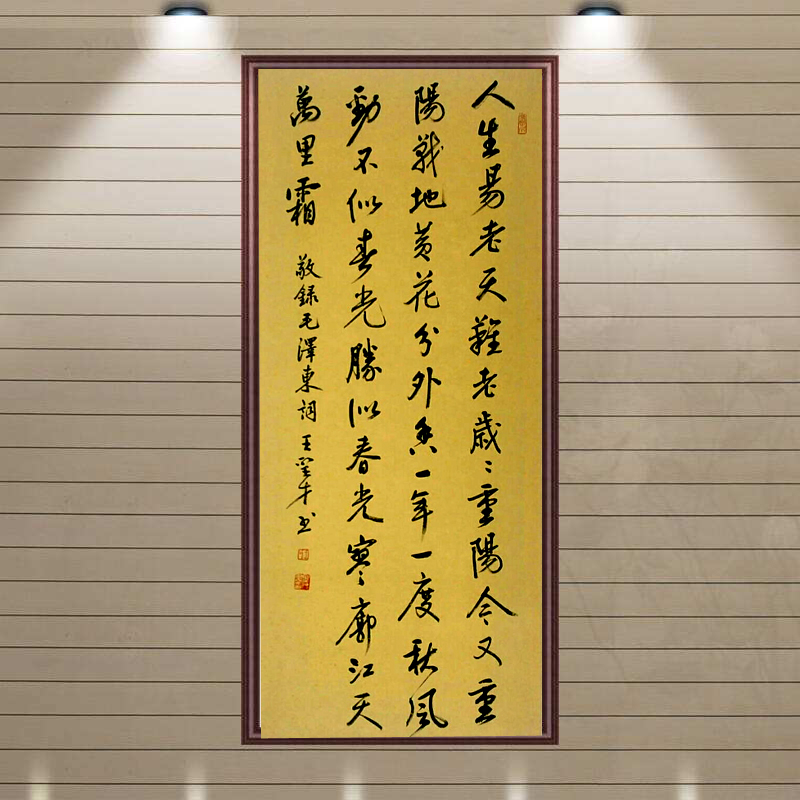 人生易老天難老歲々重陽今又重
陽戰地黃花分外香一年一度秋風
勁不似春光勝似春光寥廓江天
萬里霜
敬錄毛澤東詞 王才書